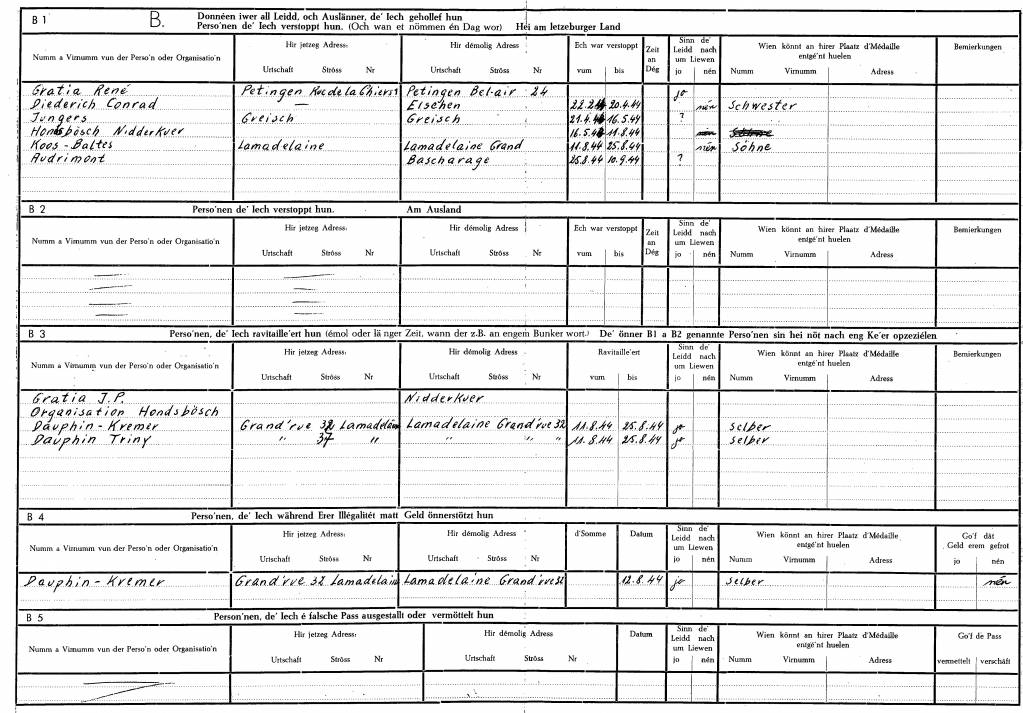 B 1 B. Donnéen iwer all Leidd, och Auslänner, de' Iech gehollef hun
Perso'nen de' Iech verstoppt hun. (Och wan et nömmen én Dag wor) Hei am letzeburger Land
Numm a Virnumm vun der Perso'n oder Organisatio'n Hir jetzeg Adress: Hir démolig Adress Ech war verstoppt Zeit an Dég Sinn de' Leidd nach um Liewen Wien könnt an hirer Plaatz d'Médaille entgé'nt huelen Bemierkungen
Urtschaft Ströss Nr Urtschaft Ströss Nr vum bis jo nén Numm Virnumm Adress
Gratia René Petingen Rue de la Chiers 1 Petingen Bel-air 24 jo
Diederich Conrad — Elschen 20.4.44 nén Schwester
Jungers Greisch Greisch 16.5.44 ?
Nidderkuer 11.8.44 nén
Koos-Baltes Lamadelaine Lamadelaine Grand 11.8.44 25.8.44 nén Söhne
Audrimont Bascharage 25.8.44 10.9.44 ?
B 2 Perso'nen de' Iech verstoppt hun. Am Ausland
Numm a Virnumm vun der Perso'n oder Organisatio'n Hir jetzeg Adress: Hir démolig Adress Ech war verstoppt Zeit an Dég Sinn de' Leidd nach um Liewen Wien könnt an hirer Plaatz d'Médaille entgé'nt huelen Bemierkungen
Urtschaft Ströss Nr Urtschaft Ströss Nr vum bis jo nén Numm Virnumm Adress
B 3 Perso'nen, de' Iech ravitaille'ert hun (émol oder länger Zeit, wann der z.B. an engem Bunker wort.) De' önner B1 a B2 genannte Perso'nen sin hei nöt nach eng Ke'er opzeziélen
Numm a Virnumm vun der Perso'n oder Organisatio'n Hir jetzeg Adress: Hir démolig Adress Ravitaille'ert Sinn de' Leidd nach um Liewen Wien könnt an hirer Plaatz d'Médaille entgé'nt huelen Bemierkungen
Urtschaft Ströss Nr Urtschaft Ströss Nr vum bis jo nén Numm Virnumm Adress
Gratia J.P. Nidderkuer
Organisation Hondsbösch
Dauphin-Kremer Grand'rue 32 Lamadelain Lamadelaine Grand'rue 32 11.8.44 25.8.44 jo selber
Dauphin Triny " 37 " " " " 11.8.44 25.8.44 jo selber
B 4 Perso'nen, de' Iech während Erer Illégalitét matt Geld önnerstötzt hun
Numm a Virnumm vun der Perso'n oder Organisatio'n Hir jetzeg Adress: Hir démolig Adress d'Somme Datum Sinn de' Leidd nach um Liewen Wien könnt an hirer Plaatz d'Médaille entgé'nt huelen Go'f dât Geld erem gefrot
Urtschaft Ströss Nr Urtschaft Ströss Nr jo nén Numm Virnumm Adress jo nén
Dauphin-Kremer Grand'rue 32 Lamadelain Lamadelaine Grand'rue 32 12.8.44 jo selber nén
B 5 Person'nen, de' Iech é falsche Pass ausgestallt oder vermöttelt hun
Numm a Virnumm vun der Perso'n oder Organisatio'n Hir jetzeg Adress: Hir démolig Adress Datum Sinn de' Leidd nach um Liewen Wien könnt an hirer Plaatz d'Médaille entgé'nt huelen Go'f de Pass
Urtschaft Ströss Nr Urtschaft Ströss Nr jo nén Numm Virnumm Adress vermettelt verschâft